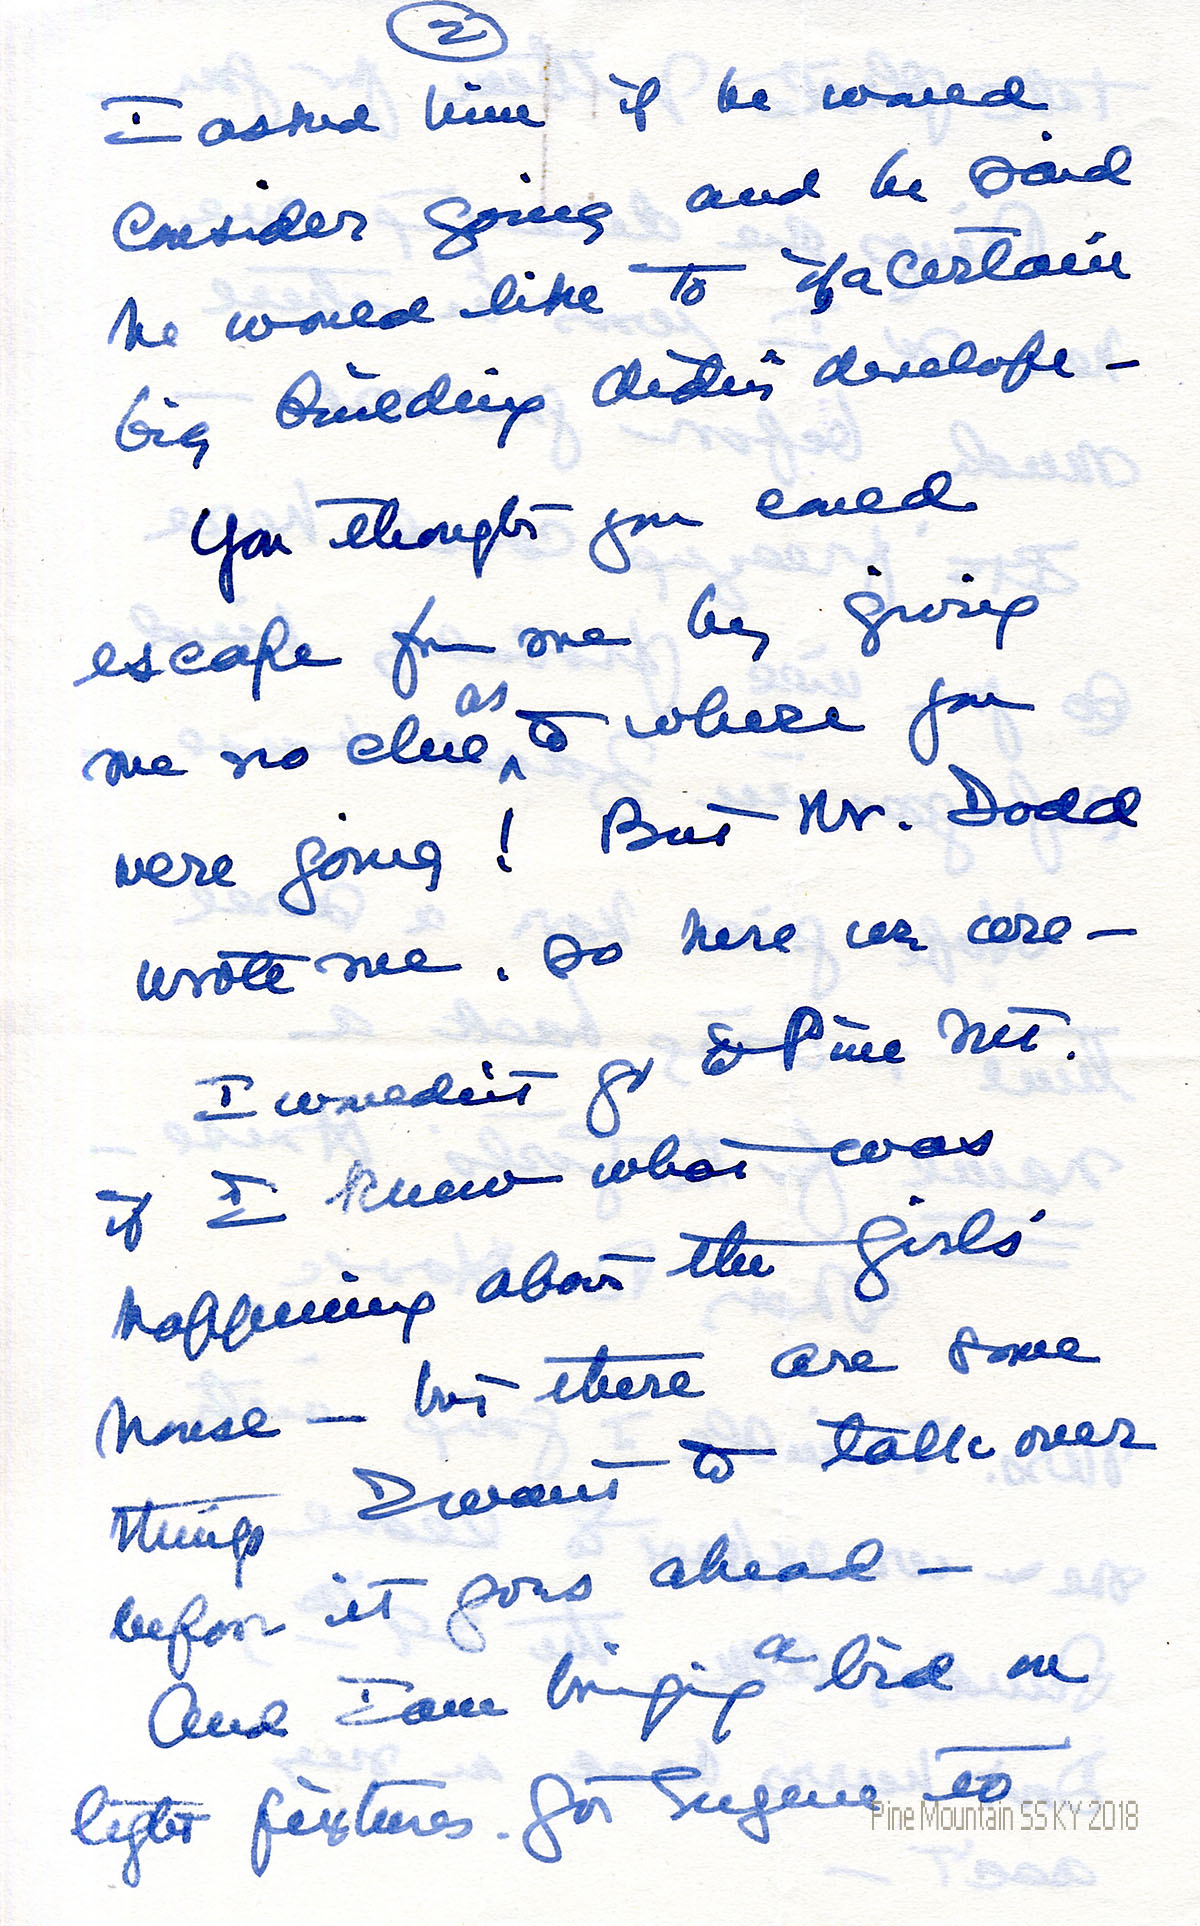 2
I asked him if he would
consider going and he said
he would like to if a certain
big building didn't develope –
You thought you could
escape from me by giving
me no clue as to where you
were going! But Mr. Dodd
wrote me. So here we are –
I wouldn't go to Pine Mt.
if I knew what was
happening about the girls'
house – but there are some
things I want to talk over
before it goes ahead –
And I am bringing a bid on
light fixtures. Got Eugene to
Pine Mountain SS KY 2018